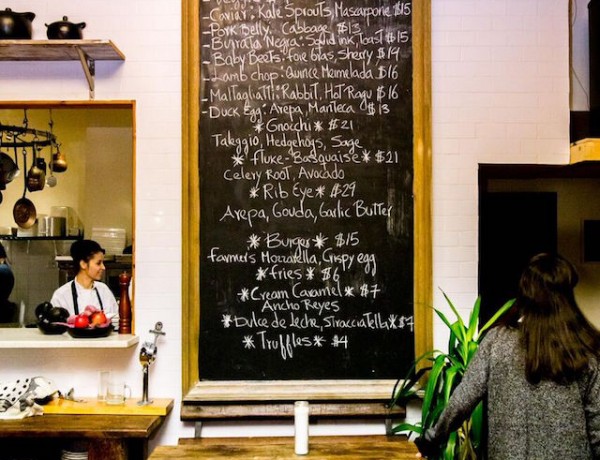 -Caviar: Kale Sprouts, Mascarpone $15
-Pork Belly: Cabbage $13
-Burrata Negra: Squid ink, toast $15
-Baby Beets: foie Gras, Sherry $19
-Lamb chop: Quince Mermelada $16
-Maltagliatti: Rabbit, Hot Ragu $16
-Duck Egg: Arepa, Manteca $13
*Gnocchi* $21
Taleggio, Hedgehogs, Sage
*Fluke-Basquaise* $21
Celery Root, Avocado
*Rib Eye* $29
Arepa, Gouda, Garlic Butter
*Burger* $15
farmer's Mozzarella, Crispy egg
*fries* $6
*Cream Caramel* $7
Ancho Reyes
*Dulce de Leche, Stracciatella* $7
*Truffles* $4